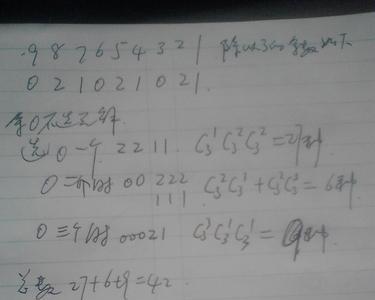 9 8 7 6 5 4 3 2 1 除以3的余数如下
0 2 1 0 2 1 0 2 1
余0不选无解.
选0一个. 2 2 1 1. C₃¹C₃²C₃² = 27种
0二个时 00 222 C₃²C₃¹ + C₃²C₃³ = 6种
111.
0三个时 00021 C₃³C₃¹C₃¹ = 9种.
总数 27+6+9=42.